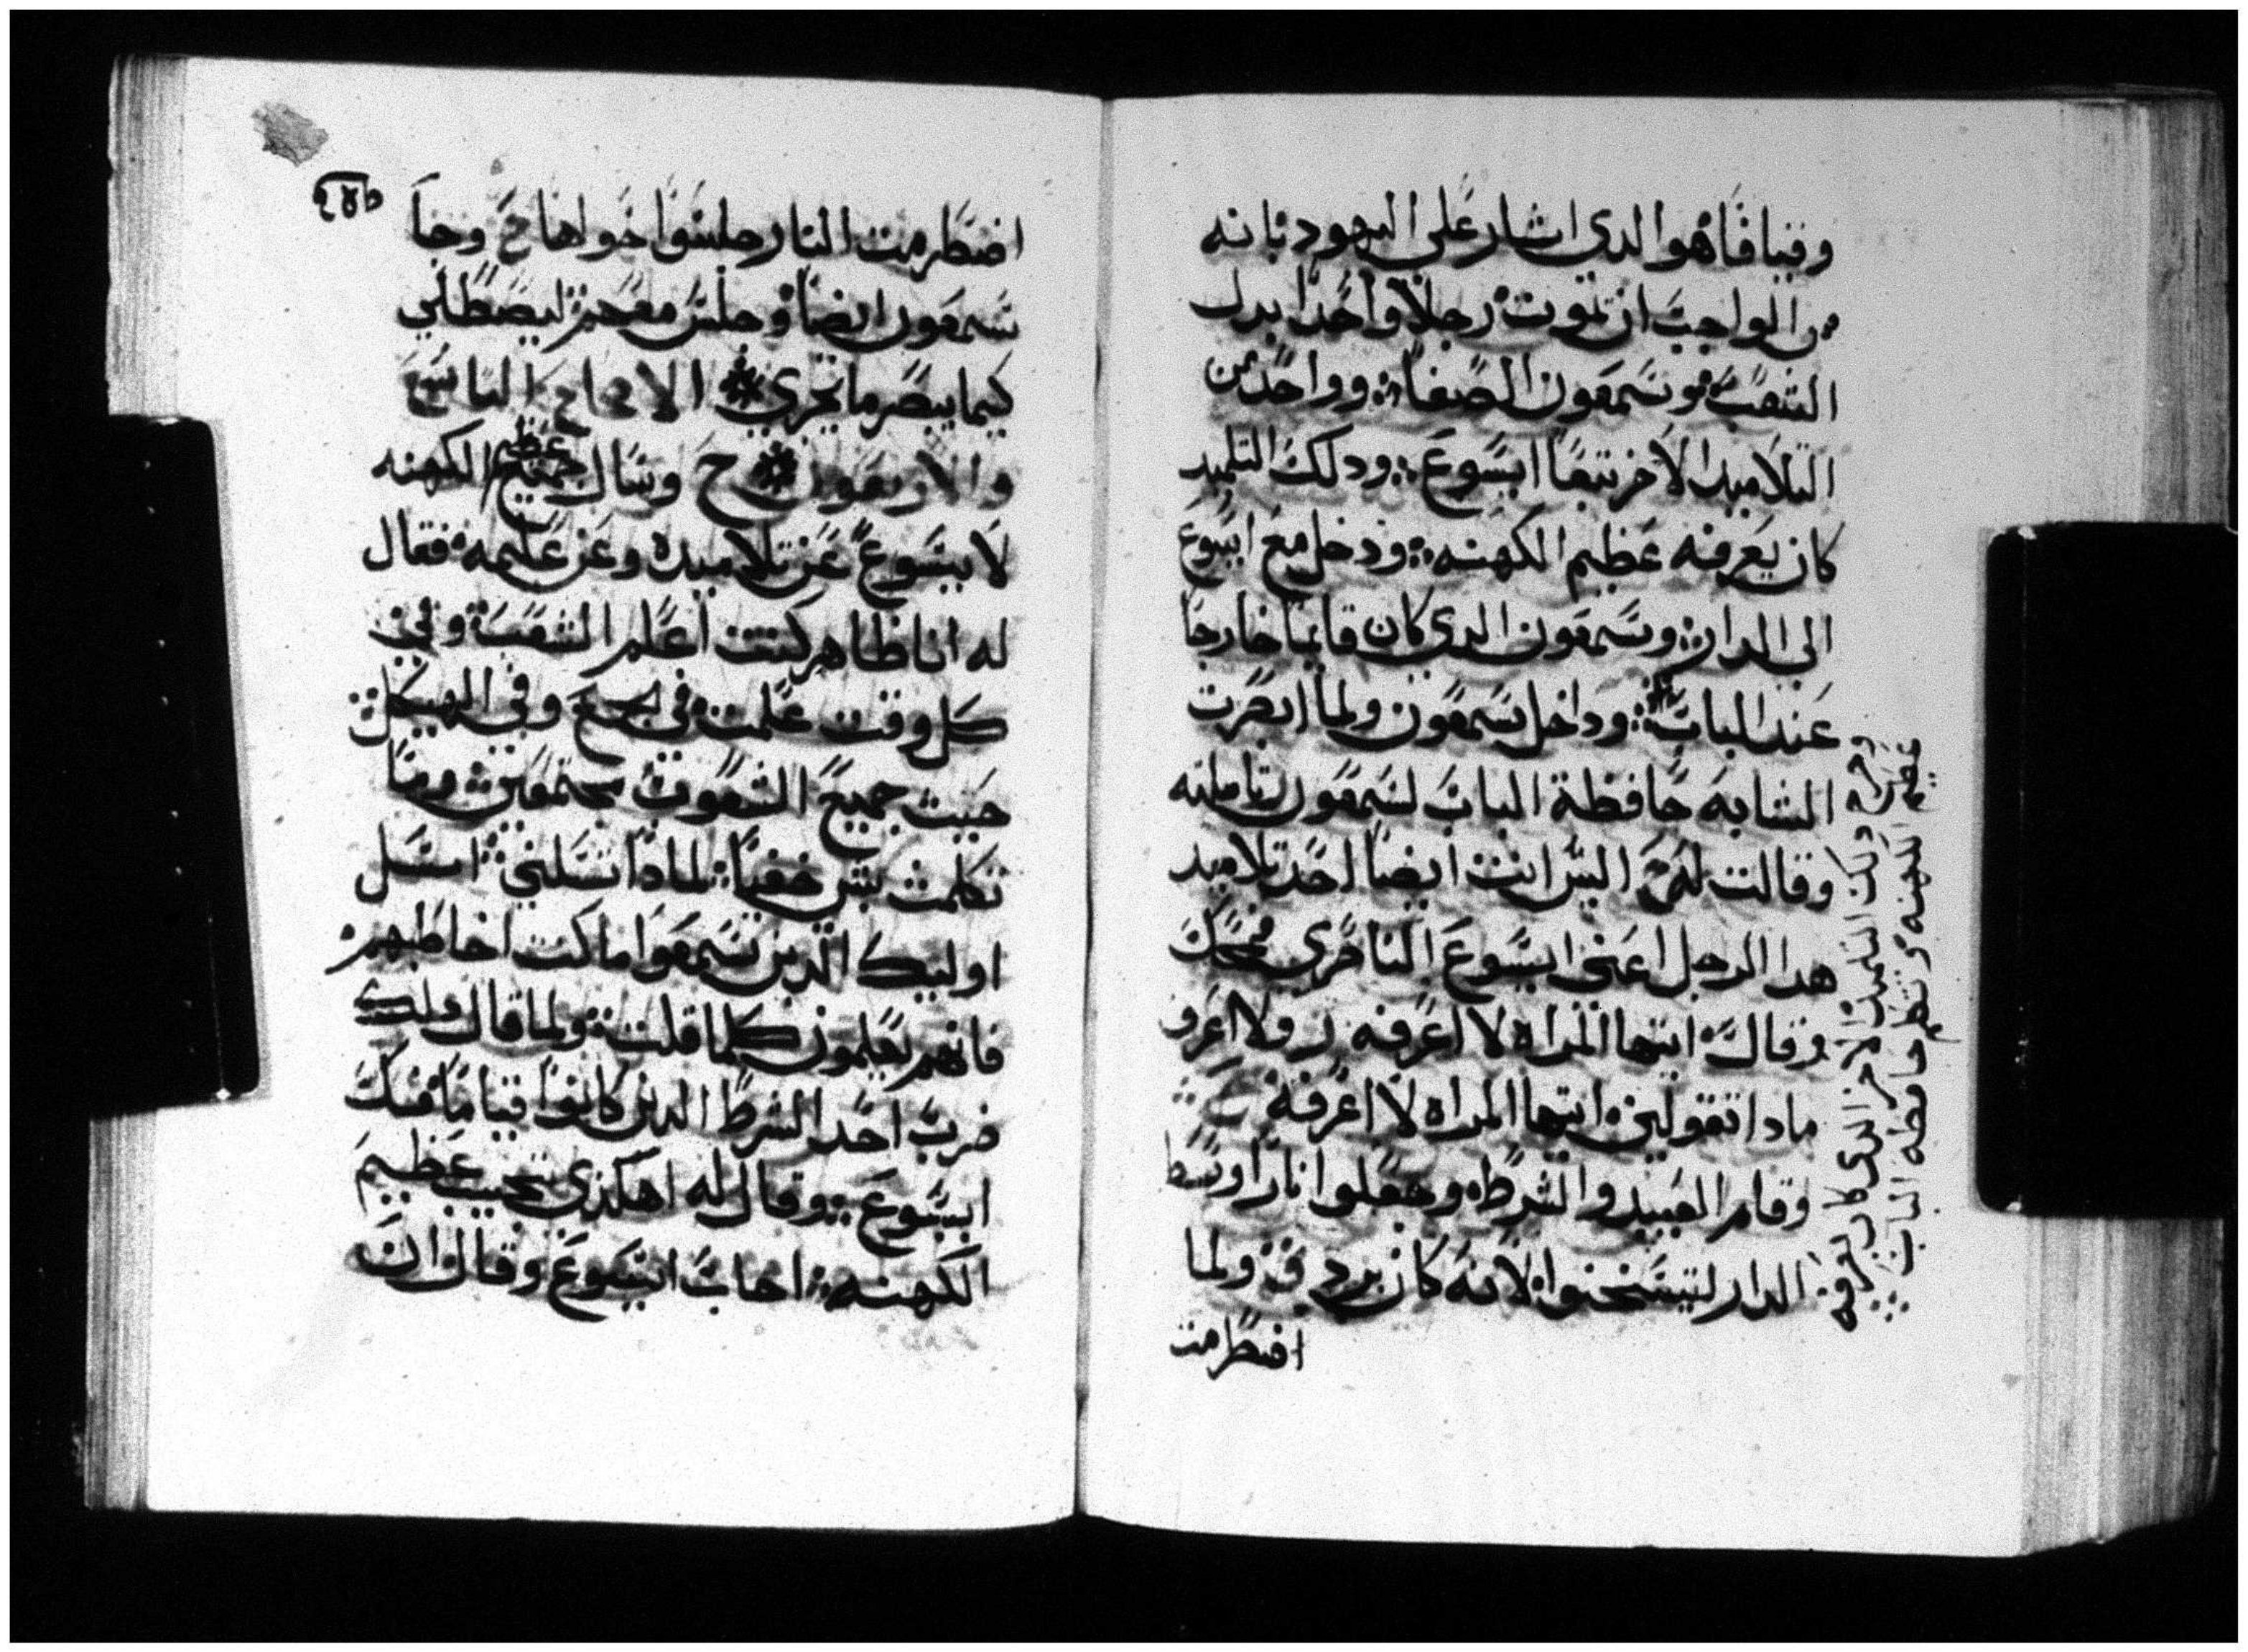 وقيافا هوا الدى اشار على اليهود بانه
من الواجب ان تموت رجلا واحدا بدل
الشعب وسمعون الصفا ووواحد من
التلاميد الاخر تبعا ايسوع ودلك التلميد
كان يعرفه عظيم الكهنه ودخل مع ايسوع
الى الدار وسمعون الدى كان قايما خارجا
عند الباب ودخل سمعون ولما ابصرت
الشابه حافظة الباب لسمعون تاملته
وقالت له اليس انت ايضا احد تلاميد
هدا الرجل اعنى ايسوع الناصرى فجحد
وقال ايتها المراه لا اعرفه ر ولا اعرف
مادا تقولين ايتها المراه لا اعرفه
وقام العبيد والشرط وجعلوا نارا وسط
الدار ليتسخنوا لانه كان برد ولما
اضطرمت
دلك التلميد الاخر الدى كان يعرفه
عظيم الكهنه حافظه الباب
٢٤٥
اضطرمت النار جلسوا حواها وجا
سمعون ايضا وجلس معهم ليصطلي
كيما يبصر ما يجري الاصحاح التاسع
والاربعون وسال عظيم الكهنه
لايسوع عن تلاميده وعن علمه فقال
له انا ظاهر كنت اعلم الشعب وفي
كل وقت علمت في المجمع وفي الهيكل
حيت جميع الشعوب مجتمعين وما
تكلمت بشي خفيا لمادا تسلني اسل
اوليك الدين سمعوا ما كنت اخاطبهم
فانهم يعلمون كلما قلت ولما قال دلك
ضرب احد الشرط الدين كانوا قياما فك
ايسوع وقال له اهكذى تجيب عظيم
الكهنه اجاب ايسوع وقال ان